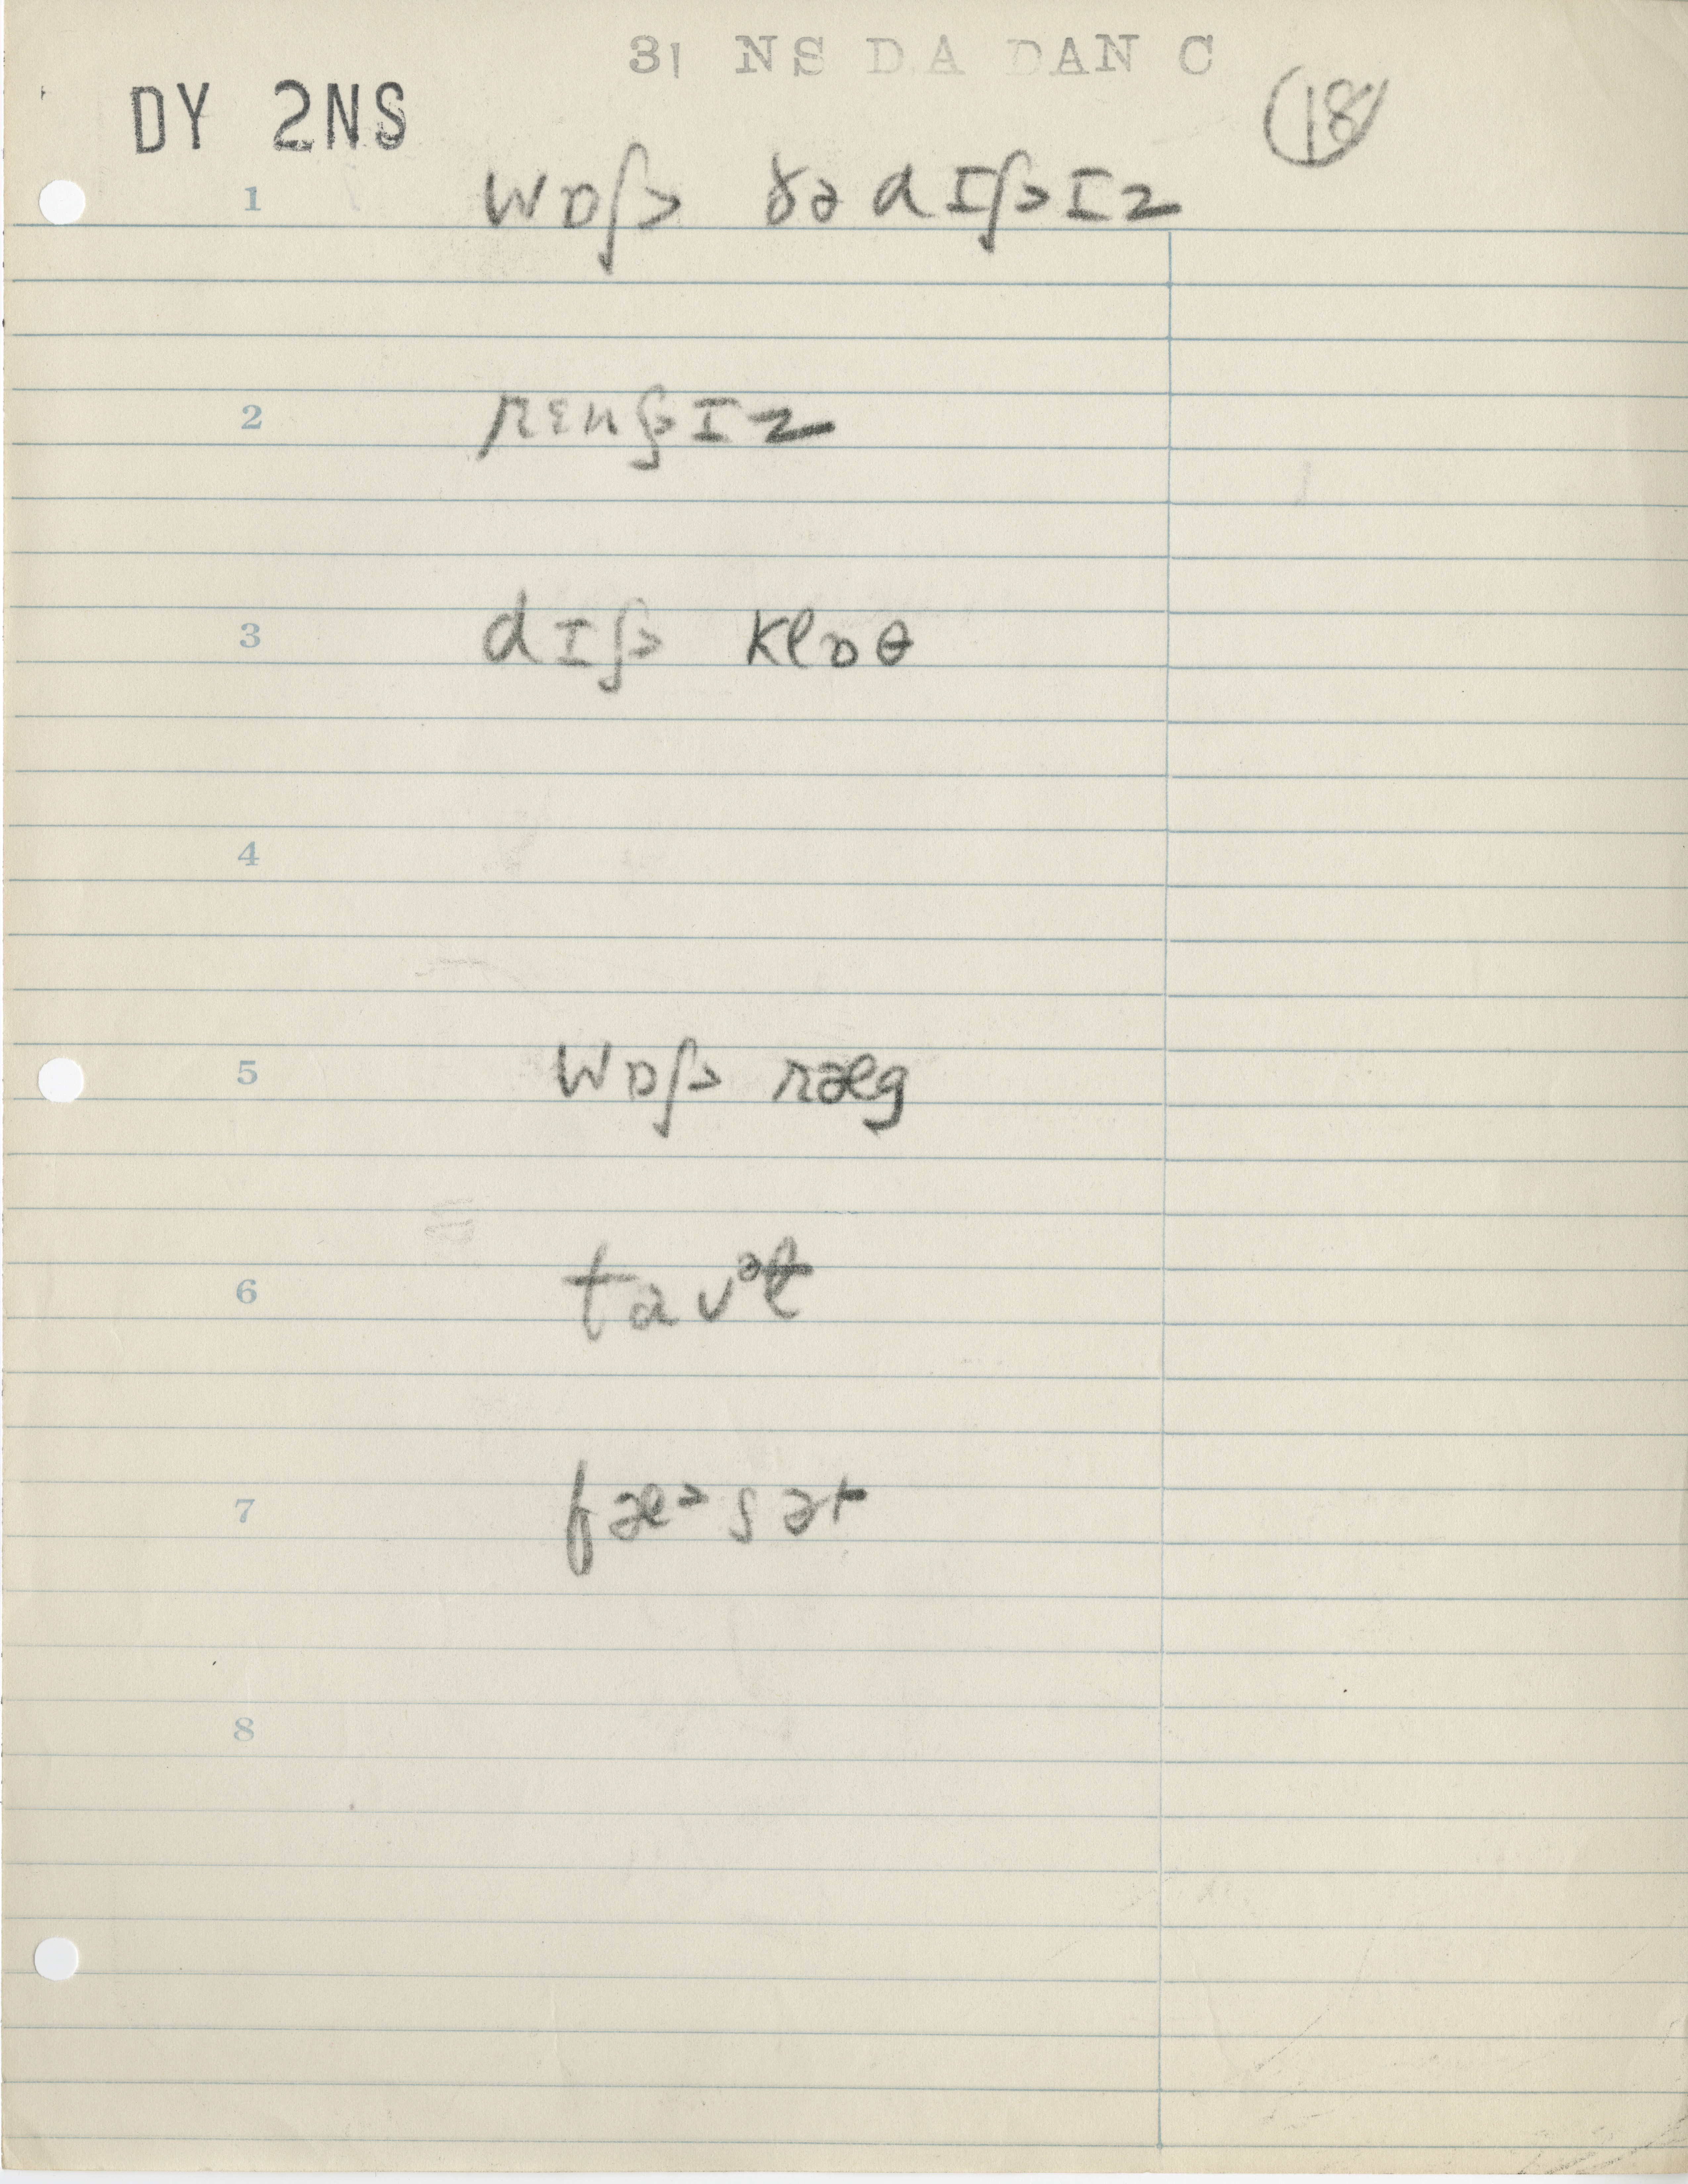 31 NS DA DAN C
DY 2NS
18
1 wɒʃ> ðə dɪʃ>ɪz
2 rɛnʃ>ɪz
3 dɪʃ> klɒθ
4
5 wɒʃ> ræg
6 tavᵊɫ
7 fæᵊsət
8